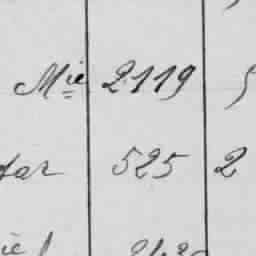 Mie 2119 5
tar 525 2